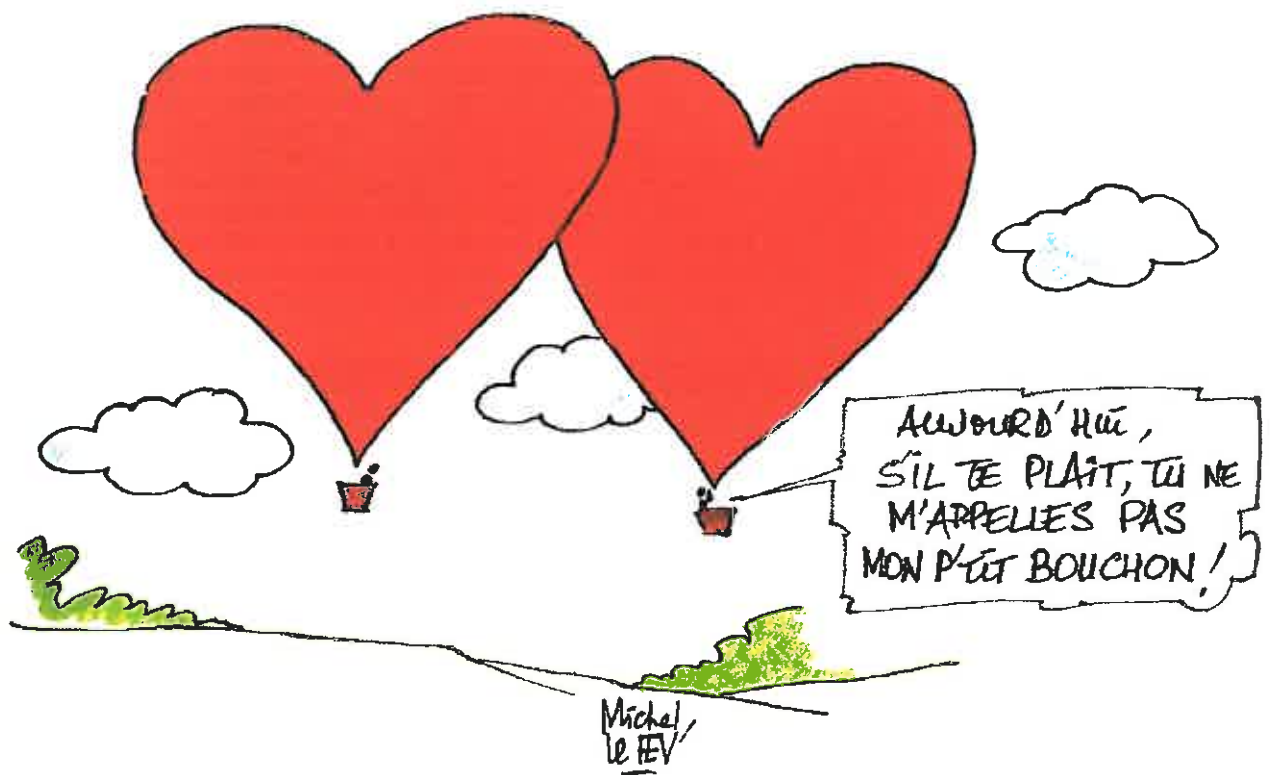 AUJOURD'HUI,
S'IL TE PLAÎT, TU NE
M'APPELLES PAS
MON P'TIT BOUCHON !
Michel
le FEV